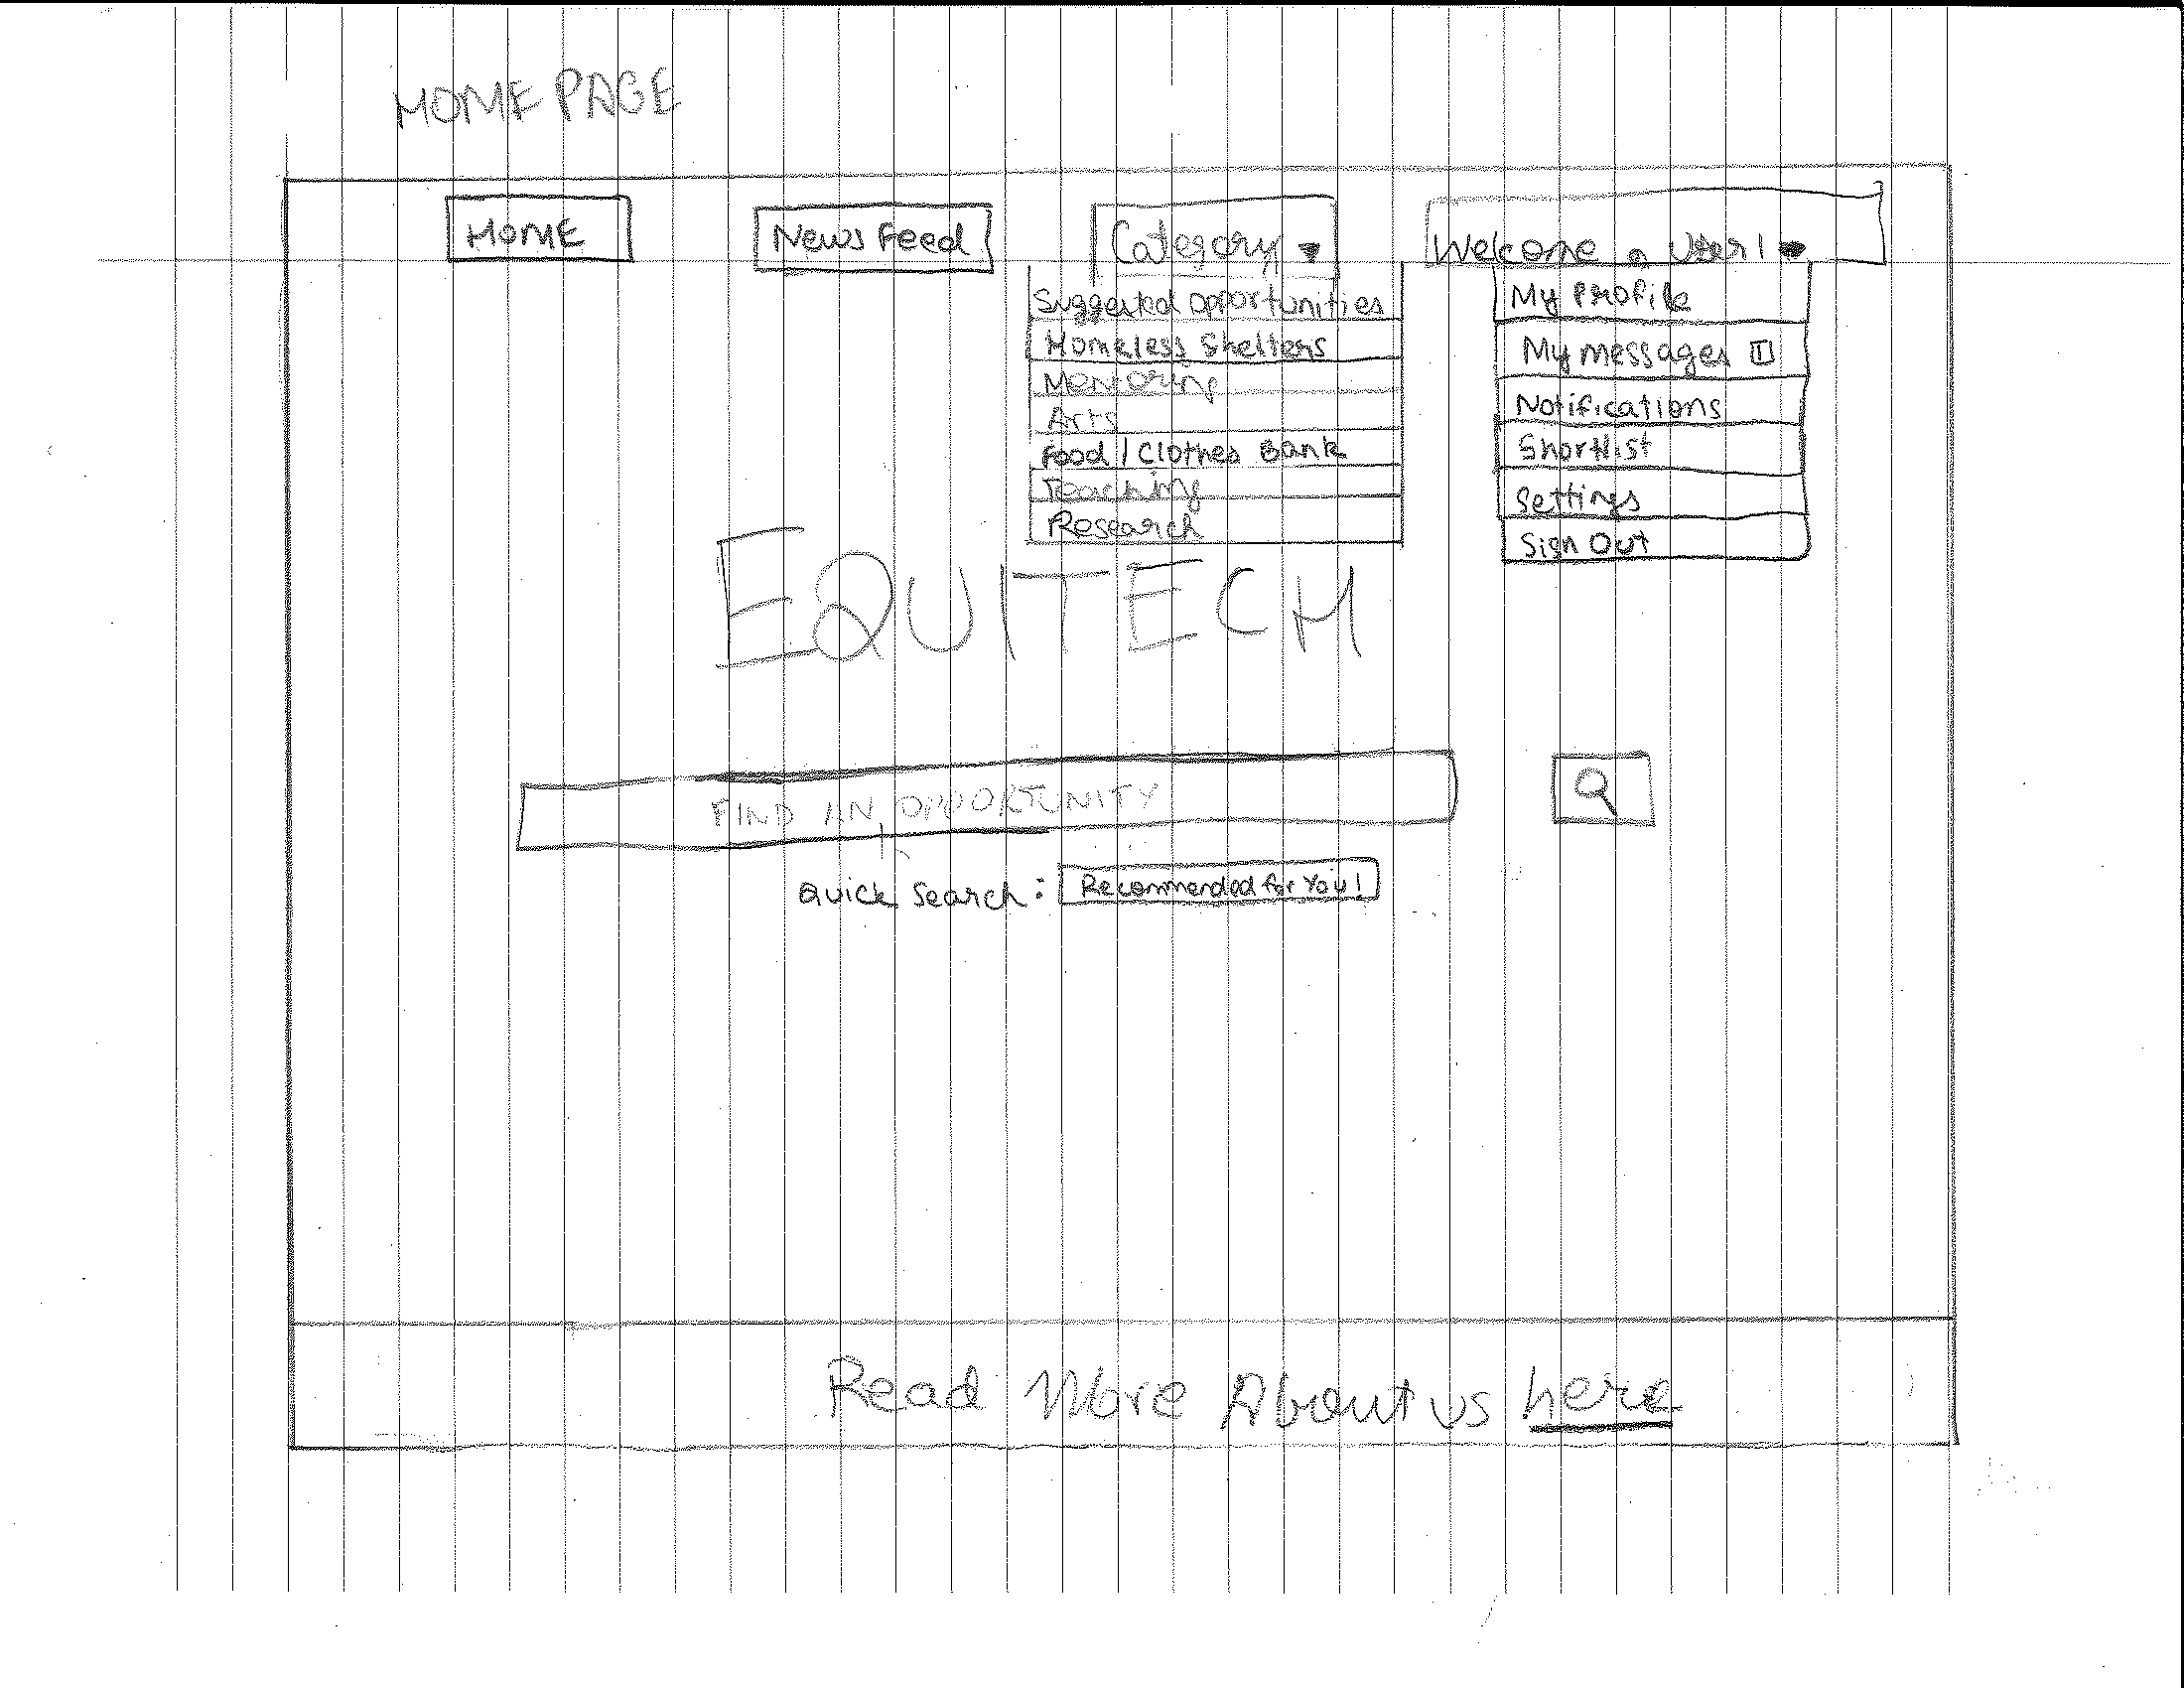 HOME PAGE
HOME
News Feed
Category
Welcome, User!
Suggested opportunities
Homeless Shelters
Mentoring
Arts
Food / Clothes Bank
Teaching
Research
My Profile
My messages 1
Notifications
Shortlist
Settings
Sign Out
EQUITECH
FIND AN OPPORTUNITY
Quick Search: Recommended for You!
Read More About us here